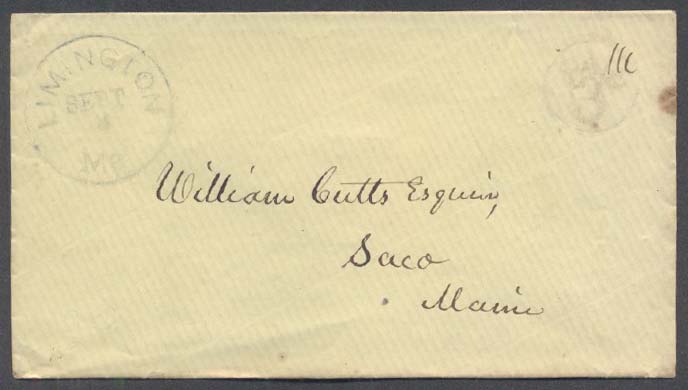 LIMINGTON
SEPT
Me
3
William Cutts Esquire,
Saco
Maine